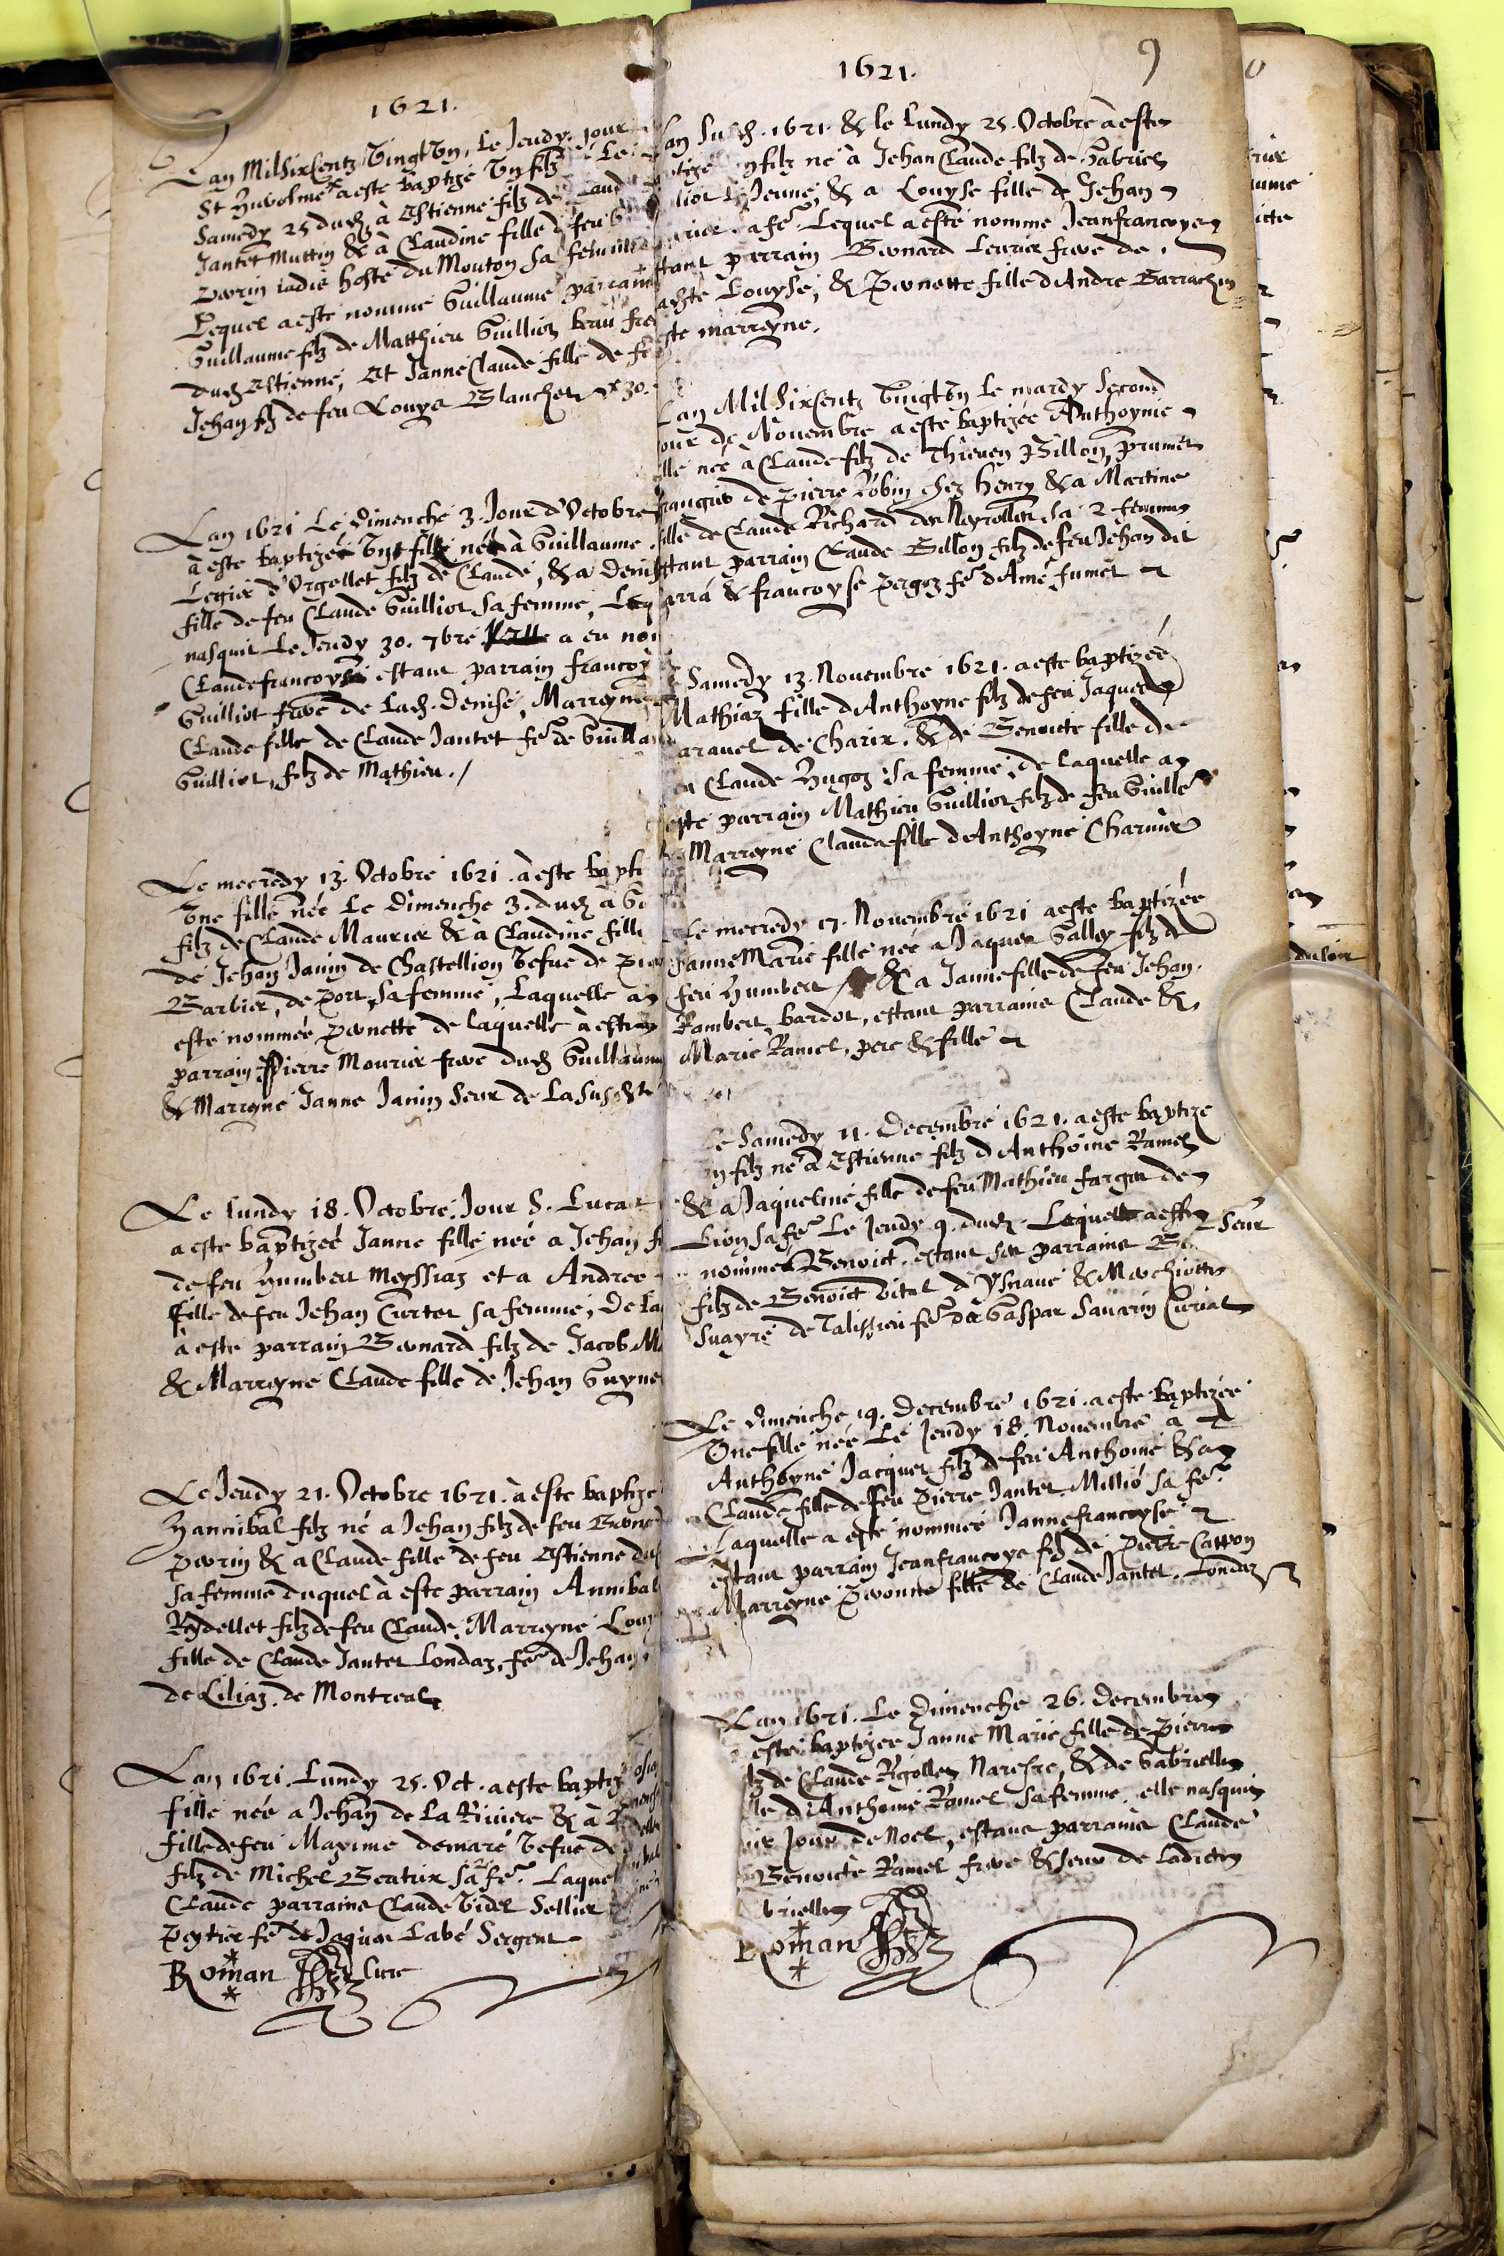 1621.
Lan Mil Sixcentz Vingt Vn, Le Jeudy jour
St Hierosme a este baptizé Vn filz Le
Samedy 25 dud à Estienne filz de Claud
Jantet Muttin & à Claudine fille de feu
Perrin iadis hoste du Mouton sa femme
Lequel a este nommé Guillaume parrain
Guillaume filz de Matthieu Guilliot beau fre
dud Estienne, Et Janne Claude fille de f
Jehan filz de feu Louys Blanchet 30.
Lan 1621 Le Dimenche 3. Jour d'Octobre
à este baptizé Vng filz né à Guillaume
Legier d'Orgellet filz de Claude, & a Denis
fille de feu Claude Guilliot sa femme, Leq
nasquit Le Jeudy 30. 7bre a eu nom
Claudefrancoys estant parrain francoy
Guilliot frere de lad. Denise, Marreyne
Claude fille de Claude Jantet fe de Guilla
Guilliot, filz de Mathieu.
Le mecredy 13. Octobre 1621. à este bapti
Vne fille née Le Dimenche 3. dud à Gu
filz de Claude Maurier & à Claudine fille
de Jehan Janin de Chastellion Vefue de pie
Barbier, de port, sa femme, Laquelle a
este nommée pernette de laquelle à este
parrain Pierre Mourier frere dud Guillaum
& Marreyne Janne Janin seur de la susd
Le lundy 18. Octobre, Jour S. Lucas
a este baptizée Janne fille née a Jehan fi
de feu Humbert Meyssiaz et a Andree
fille de feu Jehan Curtet sa femme, De la
à este parrain Bernard filz de Jacob M
& Marreyne Claude fille de Jehan Guyne
Le Jeudy 21. Octobre 1621. à este baptize
Hannibal filz né a Jehan filz de feu Bern
perrin & a Claude fille de feu Estienne du
sa femme duquel à este parrain Annibal
Rydellet filz de feu Claude, Marreyne Louy
fille de Claude Jantet Londaz, fe de Jehan
de Liliaz de Montreal
Lan 1621. Lundy 25. Oct. a este baptiz
fille née a Jehan de la Riuiere & à
fille de feu Maxime demaré Vefue de
filz de Michel Beatrix sa 2 fe. Laquel
Claude parrains Claude Videt Sellier
peytier fe de Jaques Labé Sergent
Roman Cure
1621. 9
Lan susd. 1621. & le lundy 25. Octobre à este
ptizé Vn filz né à Jehan Claude filz de Gabriel
lliot Le Jeune, & a Louyse fille de Jehan
urier sa fe. Lequel a este nomme Jeanfrancoys
stant parrain Bernard Leurier frere de
adite Louyse, & Pernette fille d'Andre Barrachin
ste marreyne.
Lan Mil Sixcentz Vingt Vn le mardy second
our de Nouembre a este baptizée Anthoynie
lle née à Claude filz de Thieuen Billon, prumet
rangier de Pierre Robin chez Henry & a Martine
fille de Claude Richard des Neyrolles sa 2 femme
stant parrain Claude Billon filz de feu Jehan dit
arra & francoyse pergoz fe d'Amé fumet
Samedy 13. Nouembre 1621. a este baptizée
Mathiaz fille d'Anthoyne filz de feu Jaques
arauel de Charix. & de Benoicte fille de
eu Claude Hugoz sa femme, de laquelle a
este parrain Mathieu Guilliot filz de feu Guille
Marreyne Clauda fille de Anthoyne Charuier
Le mecredy 17. Nouembre 1621 a este baptizée
Janne Marie fille née a Jaques Galley filz de
feu Humbert & a Janne fille de feu Jehan
Rambert bardot, estant parrains Claude &
Marie Ramel, pere & fille
Le Samedy 11. Decembre 1621. a este baptize
vn filz né a Estienne filz d'Anthoine Ramel
& a Jaqueline fille de feu Mathieu fargot de
Lion sa fe. Le Jeudy 9. dud. Lequel a este
nommé Benoict, estant ses parrains Be Seur
filz de Benoict Vital d'Ysnaue & Marchiotte
Suayre de Talissieu fe da Gaspar Sauarin Curial
Le Dimenche 19. Decembre 1621. a este baptizée
Vne fille née Le Jeudy 18. Nouembre a
Anthoyne Jacquet filz de feu Anthoine & a
Claude fille de feu Pierre Jantet Millio sa fe.
Laquelle a este nommée Jannefrancoyse
estant parrain Jeanfrancoys filz de Pierre Catton
Marreyne Pernette fille de Claude Jantet Londaz
Lan 1621. Le Dimenche 26. Decembre
este baptizee Janne Marie fille de Pierre
lz de Claude Rigollet Marechre, & de Gabrielle
lle d'Anthoine Ramel sa femme. elle nasquit
Jour de Noel, estant parrains Claude
Benoicte Ramel frere & seur de ladicte
brielle
Roman